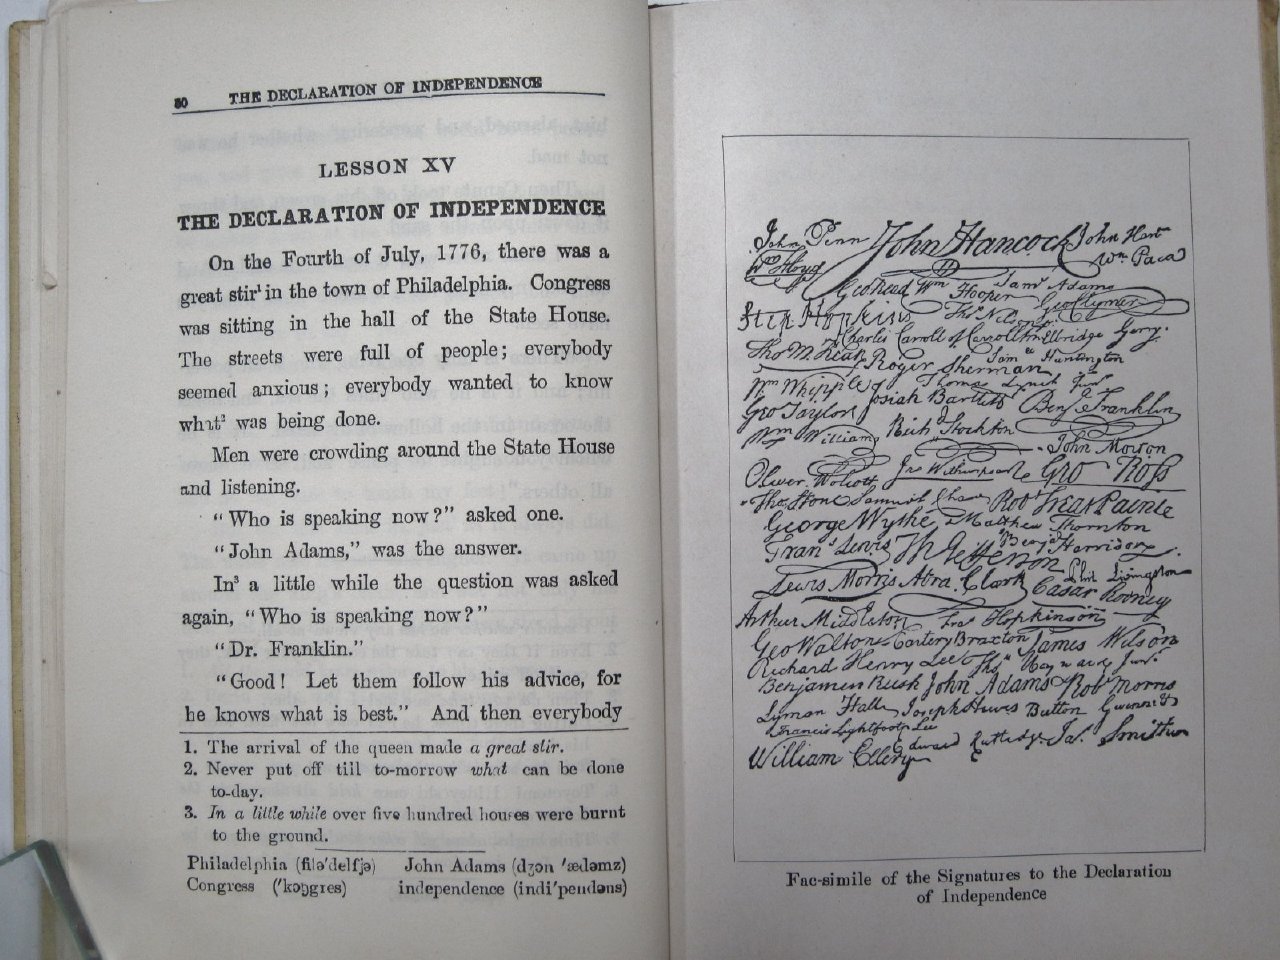 80 THE DECLARATION OF INDEPENDENCE
LESSON XV
THE DECLARATION OF INDEPENDENCE
On the Fourth of July, 1776, there was a
great stir¹ in the town of Philadelphia. Congress
was sitting in the hall of the State House.
The streets were full of people; everybody
seemed anxious; everybody wanted to know
what² was being done.
Men were crowding around the State House
and listening.
"Who is speaking now?" asked one.
"John Adams," was the answer.
In³ a little while the question was asked
again, "Who is speaking now?"
"Dr. Franklin."
"Good! Let them follow his advice, for
he knows what is best." And then everybody
1. The arrival of the queen made a great stir.
2. Never put off till to-morrow what can be done
to-day.
3. In a little while over five hundred houses were burnt
to the ground.
Philadelphia (filə'delfjə) John Adams (dʒɔn 'ædəmz)
Congress ('kɔŋgres) independence (indi'pendəns)
John Penn John Hancock John Hart
Wm Floyd Wm Paca
Geo Read Wm Hooper Saml Adams Geo Clymer
Step Hopkins Thos Nelson
Charles Carroll of Carrollton Elbridge Gerry.
Tho M:Kean Roger Sherman Saml Huntington
Wm Whipple Josiah Bartlett Thomas Lynch Junr.
Geo Taylor Benj Franklin
Wm Williams Rich Stockton John Morton
Oliver Wolcott Jno Witherspoon Geo Ross
Tho Stone Samuel Chase Robt Treat Paine
George Wythe Matthew Thornton
Frans Lewis Th Jefferson Benj Harrison
Lewis Morris Abra Clark Phil Livingston
Cæsar Rodney
Arthur Middleton Fras Hopkinson
Geo Walton Carter Braxton James Wilson
Richard Henry Lee Thos Heyward Junr.
Benjamin Rush John Adams Robt Morris
Lyman Hall Joseph Hewes Button Gwinnett
Francis Lightfoot Lee
William Ellery Edward Rutledge Jas. Smith
Fac-simile of the Signatures to the Declaration
of Independence